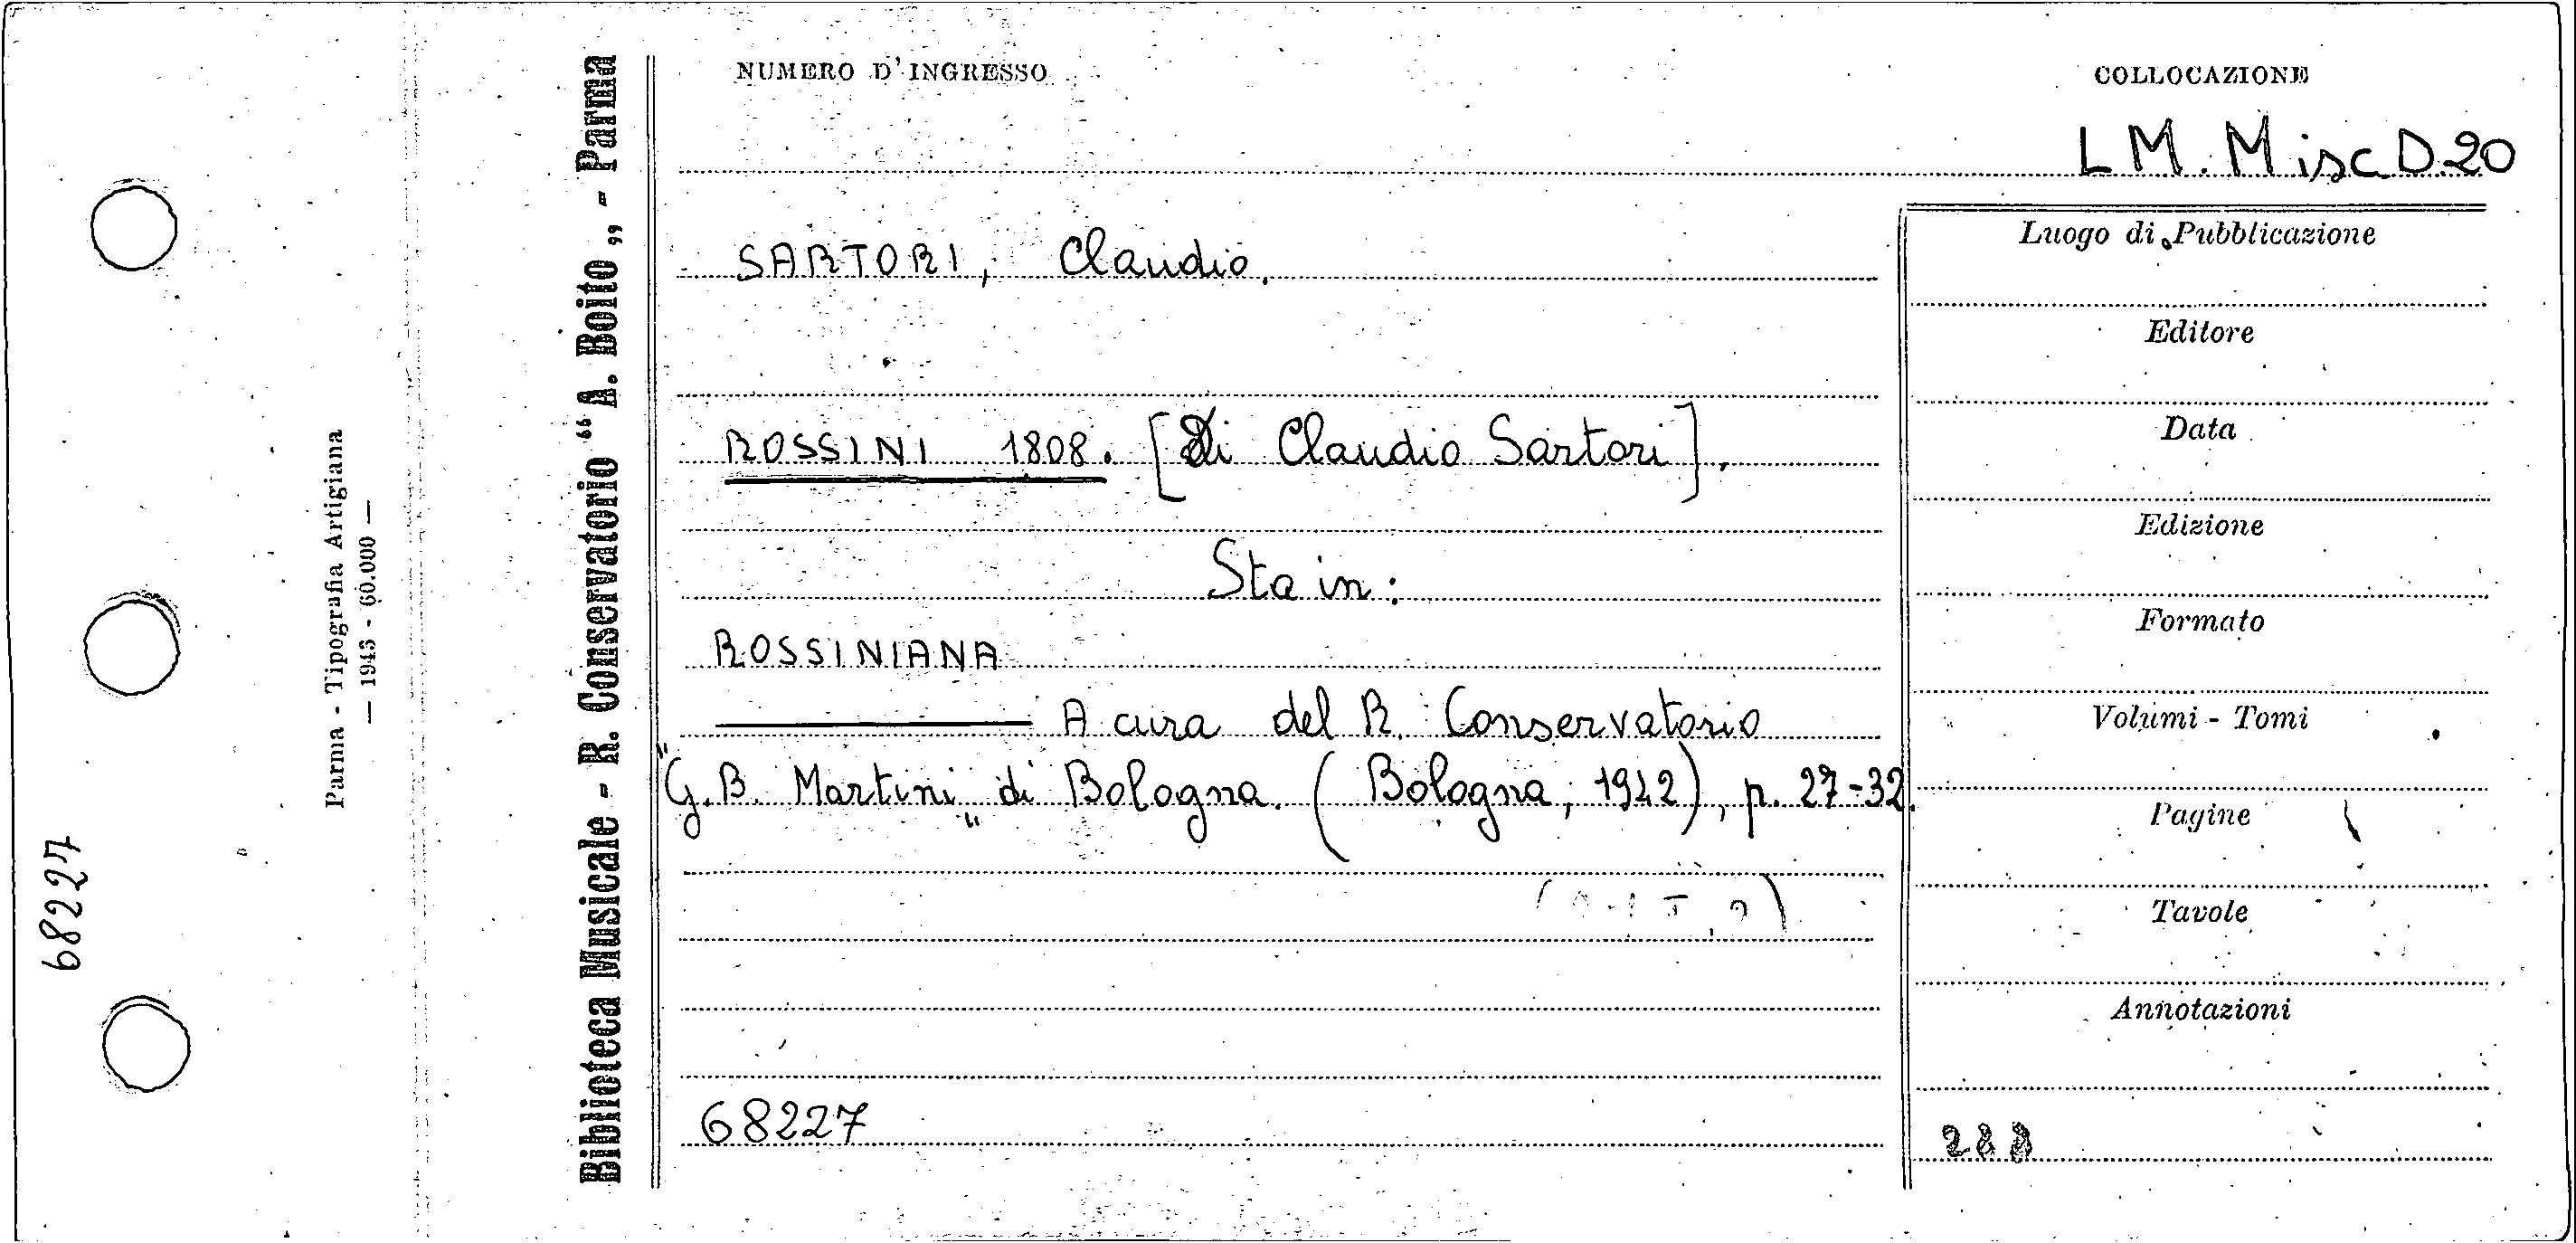 NUMERO D'INGRESSO
COLLOCAZIONE
LM. Misc D.20
SARTORI, Claudio.
ROSSINI 1808. [Di Claudio Sartori].
Sta in:
ROSSINIANA
A cura del R. Conservatorio
"G.B. Martini" di Bologna. (Bologna, 1942), p. 27-32.
68227
Luogo di Pubblicazione
Editore
Data
Edizione
Formato
Volumi - Tomi
Pagine
Tavole
Annotazioni
Biblioteca Musicale - R. Conservatorio "A. Boito„ - Parma
Parma - Tipografia Artigiana
— 1943 - 60.000 —
68227